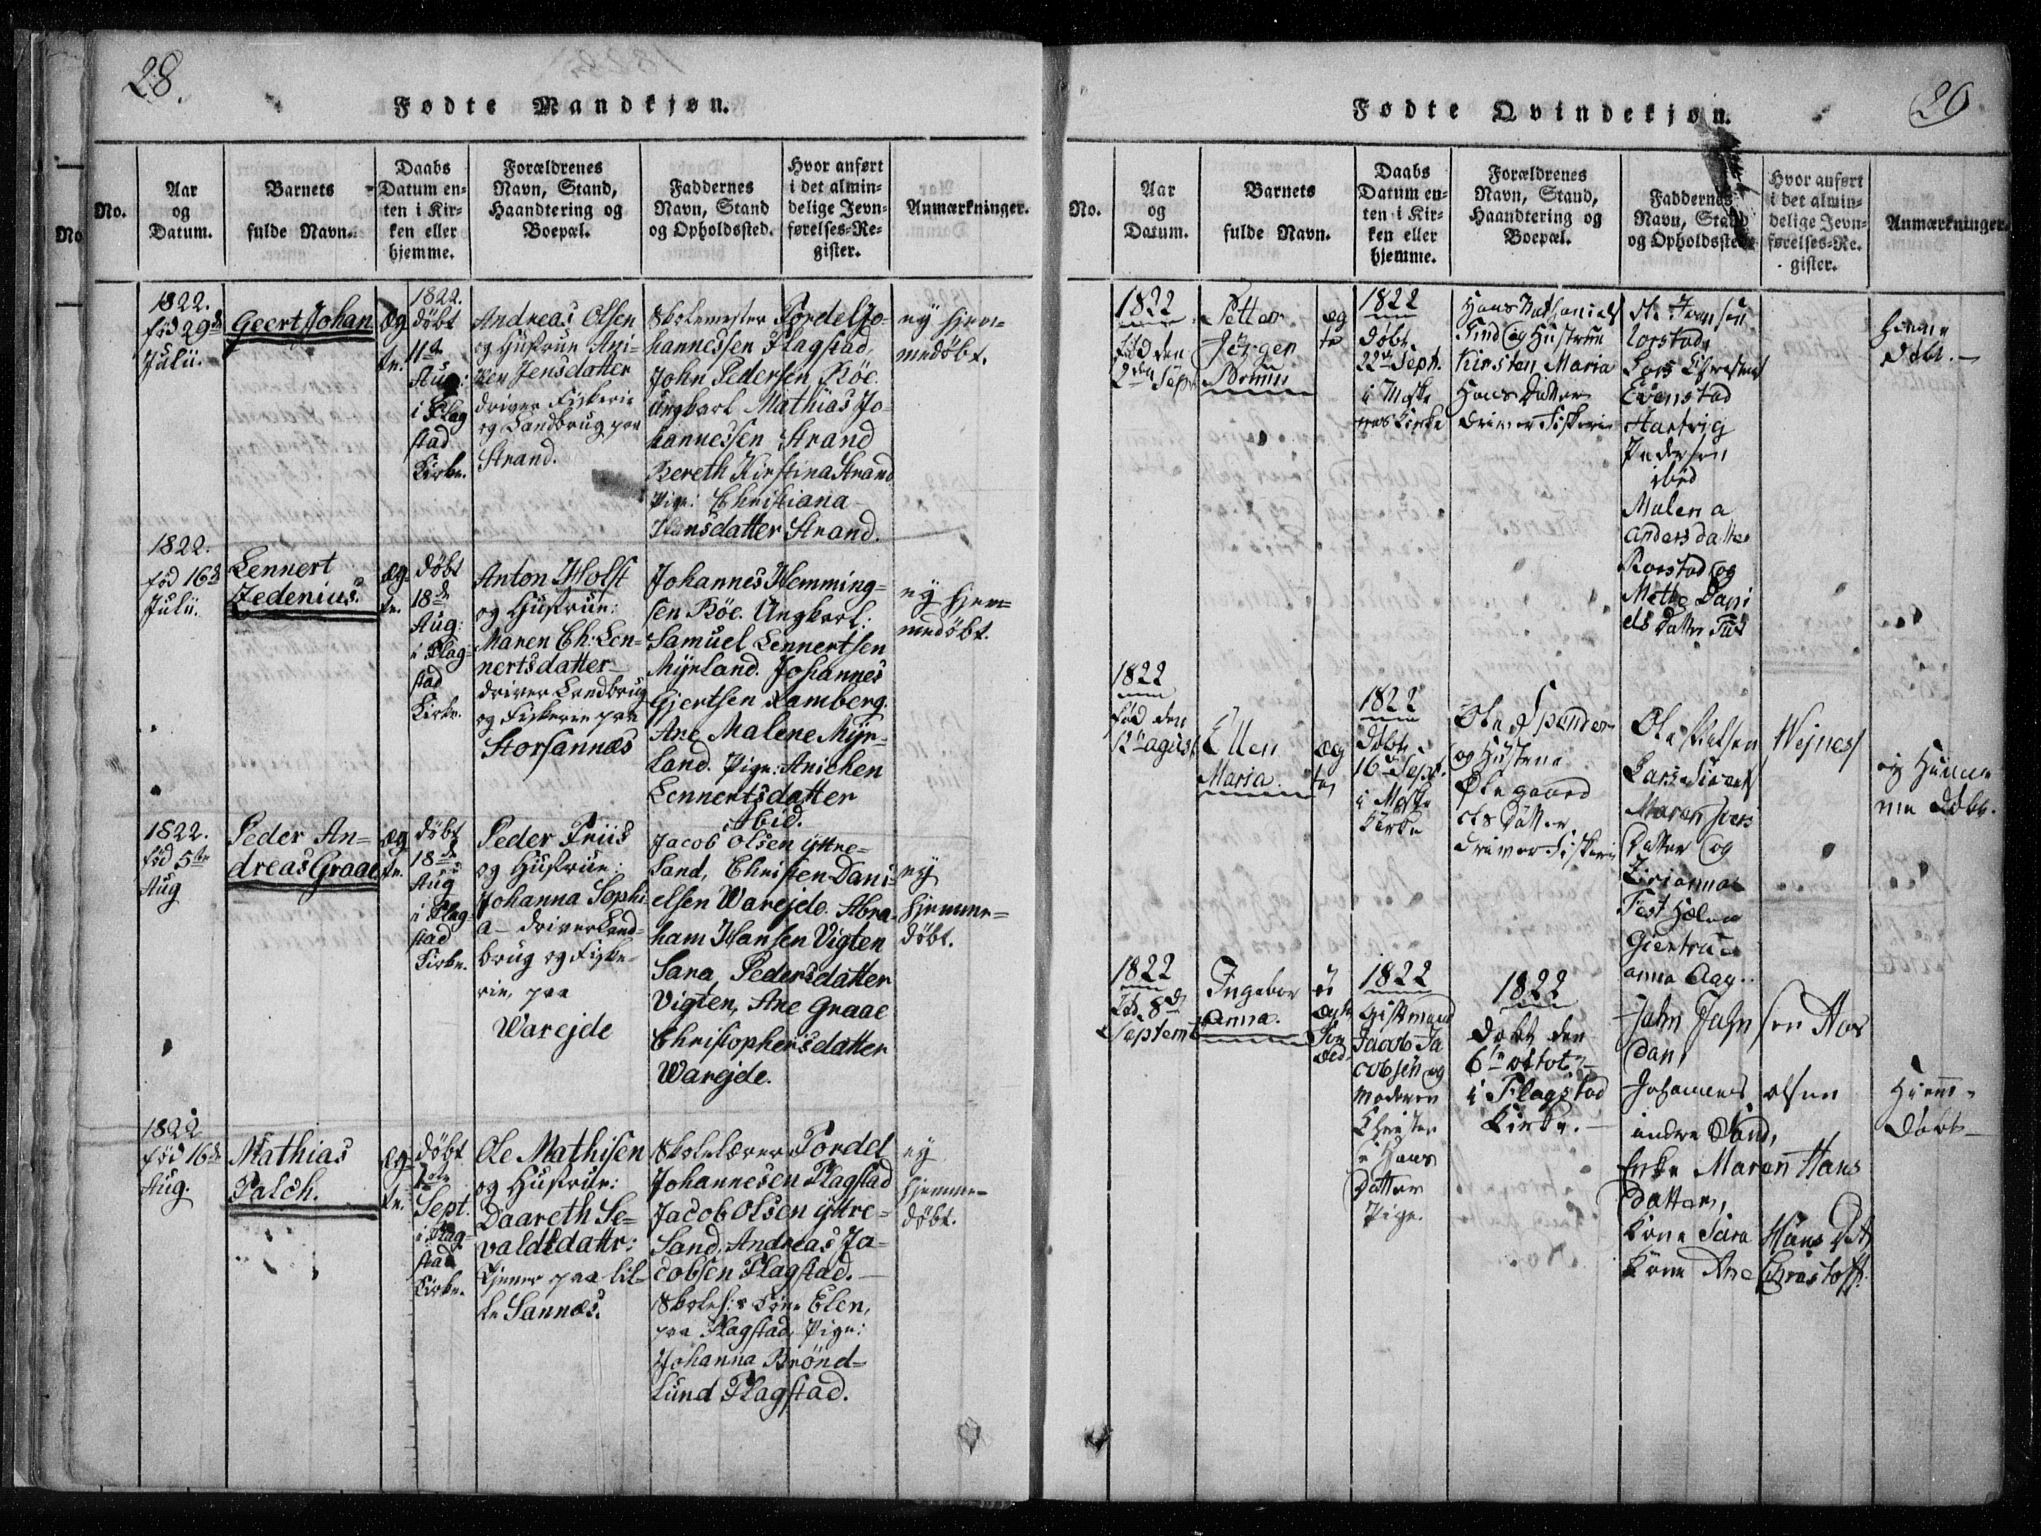 28.
Fødte Mandkjøn.
No.
Aar
og
Datum.
Barnets
fulde Navn.
Daabs
Datum en-
ten i Kir-
ken eller
hjemme.
Forældrenes
Navn, Stand,
Haandtering og
Boepæl.
Faddernes
Navn, Stand
og Opholdssted.
Hvor anført
i det almin-
delige Jevn-
førelses-Re-
gister.
Anmærkninger.
1822.
fød 29de
Julii.
Geert Johan
Æg
te.
1822.
døbt
11te
Aug:
i Flag
stad
Kirke.
Andreas Olsen
og Hustrue Ani-
ken Jensdatter
driver Fiskerie
og Landbrug paa
Strand.
Skolemester Tordel Jo-
hannessen Flagstad,
John Pedersen Böe.
Ungkarl Mathias Jo-
hannessen Strand
Bereth Kirstina Strand
Pige: Christiana
Hansdatter Strand.
ey hjem-
medøbt.
1822.
fød 16de
Julii.
Lennert
Zedenius.
Æg
te.
døbt
18de
Aug:
i Flag-
stad
Kirke.
Anton Holst
og Hustrue:
Maren Ch: Len-
nertsdatter
driver Landbrug
og Fiskerie paa
Storsannæs
Johannes Hemming-
sen Böe. Ungkarl:
Samuel Lennertsen
Myrland. Johannes
Gjertsen Ramberg.
Ane Malene Myr-
land. Pige: Anichen
Lennertsdatter
Ibid.
ey hjem-
medøbt.
1822.
fød 5te
Aug
Peder An-
dreas Graae
Æg
te.
døbt
18de
Aug
i Flag-
stad
Kirke.
Peder Friis
og Hustrue:
Johanna Sophi-
a- driver Land-
brug og Fiske-
rie, paa
Warejde
Jacob Olsen yttre-
Sand, Christen Dani-
elsen Warejde. Abra-
ham Hansen Vigten
Sara Pedersdatter
Vigten, Ane Graae
Christophersdatter
Warejde.
ey
hjemme-
døbt.
1822
fød 16de
Aug.
Mathias
Falch.
Æg
te.
døbt
1ste
Sept.
i Flag-
stad
Kirke.
Ole Mathisen
og Hustrue:
Daareth Se-
valdsdattr:
tjener paa lil-
le Sannæs.
Skolelærer Tordel
Johannesen Flagstad
Jacob Olsen yttre-
Sand, Andreas Ja-
cobsen Flagstad.
Skolel:s Kone Elen,
paa Flagstad, Pige:
Johanna Brönd-
lund Flagstad.
ey
hjemme-
döbt.
29.
Fødte Qvindekjøn.
No.
Aar
og
Datum.
Barnets
fulde Navn.
Daabs
Datum en-
ten i Kir-
ken eller
hjemme.
Forældrenes
Navn, Stand,
Haandtering og
Boepæl.
Faddernes
Navn, Stand
og Opholdssted.
Hvor anført
i det almin-
delige Jevn-
førelses-Re-
gister.
Anmærkninger.
1822
fød den
2den Sept
Petter
Jörgen
æg
te
1822
Döbt
22de Sept.
i Moske
nes Kirke
Hans Nathaniels
Find og Hustrue
Kirsten Maria
Hans Datter
driver Fiskerie
Lars Christens
Evenstad
Hartvig
Pedersen
ibid
Malena
Anders datter
Rorstad og
Mette Dani
els datter
hieme
Döbt.
1822
fød den
12te agust
Ellen
Maria.
æg
te
1822
Döbt
16de Sept.
i Moske
Kirke
Ole
og Hustrue
ols Datter
driver Fiskerie
Ole Nielsen
Maren
Datter og
Giertrud
anna Aag..
ey hieme
me Döbt.
1822
fød 8de
Septemb
Ingebor
anna.
u
ægte
1822
Jacob Ja
cobsen og
Moderen
Christen
e Hans
Datter
Pige.
1822
Döbt den
6te octob.
i Flagstad
Kirke.
John Johnsen
Johannes olsen
indre Sand,
Enke Maren Hans
Datter,
Kone Sara Hans D.
Kone Ane Christoff:
Hiem-
Döbt